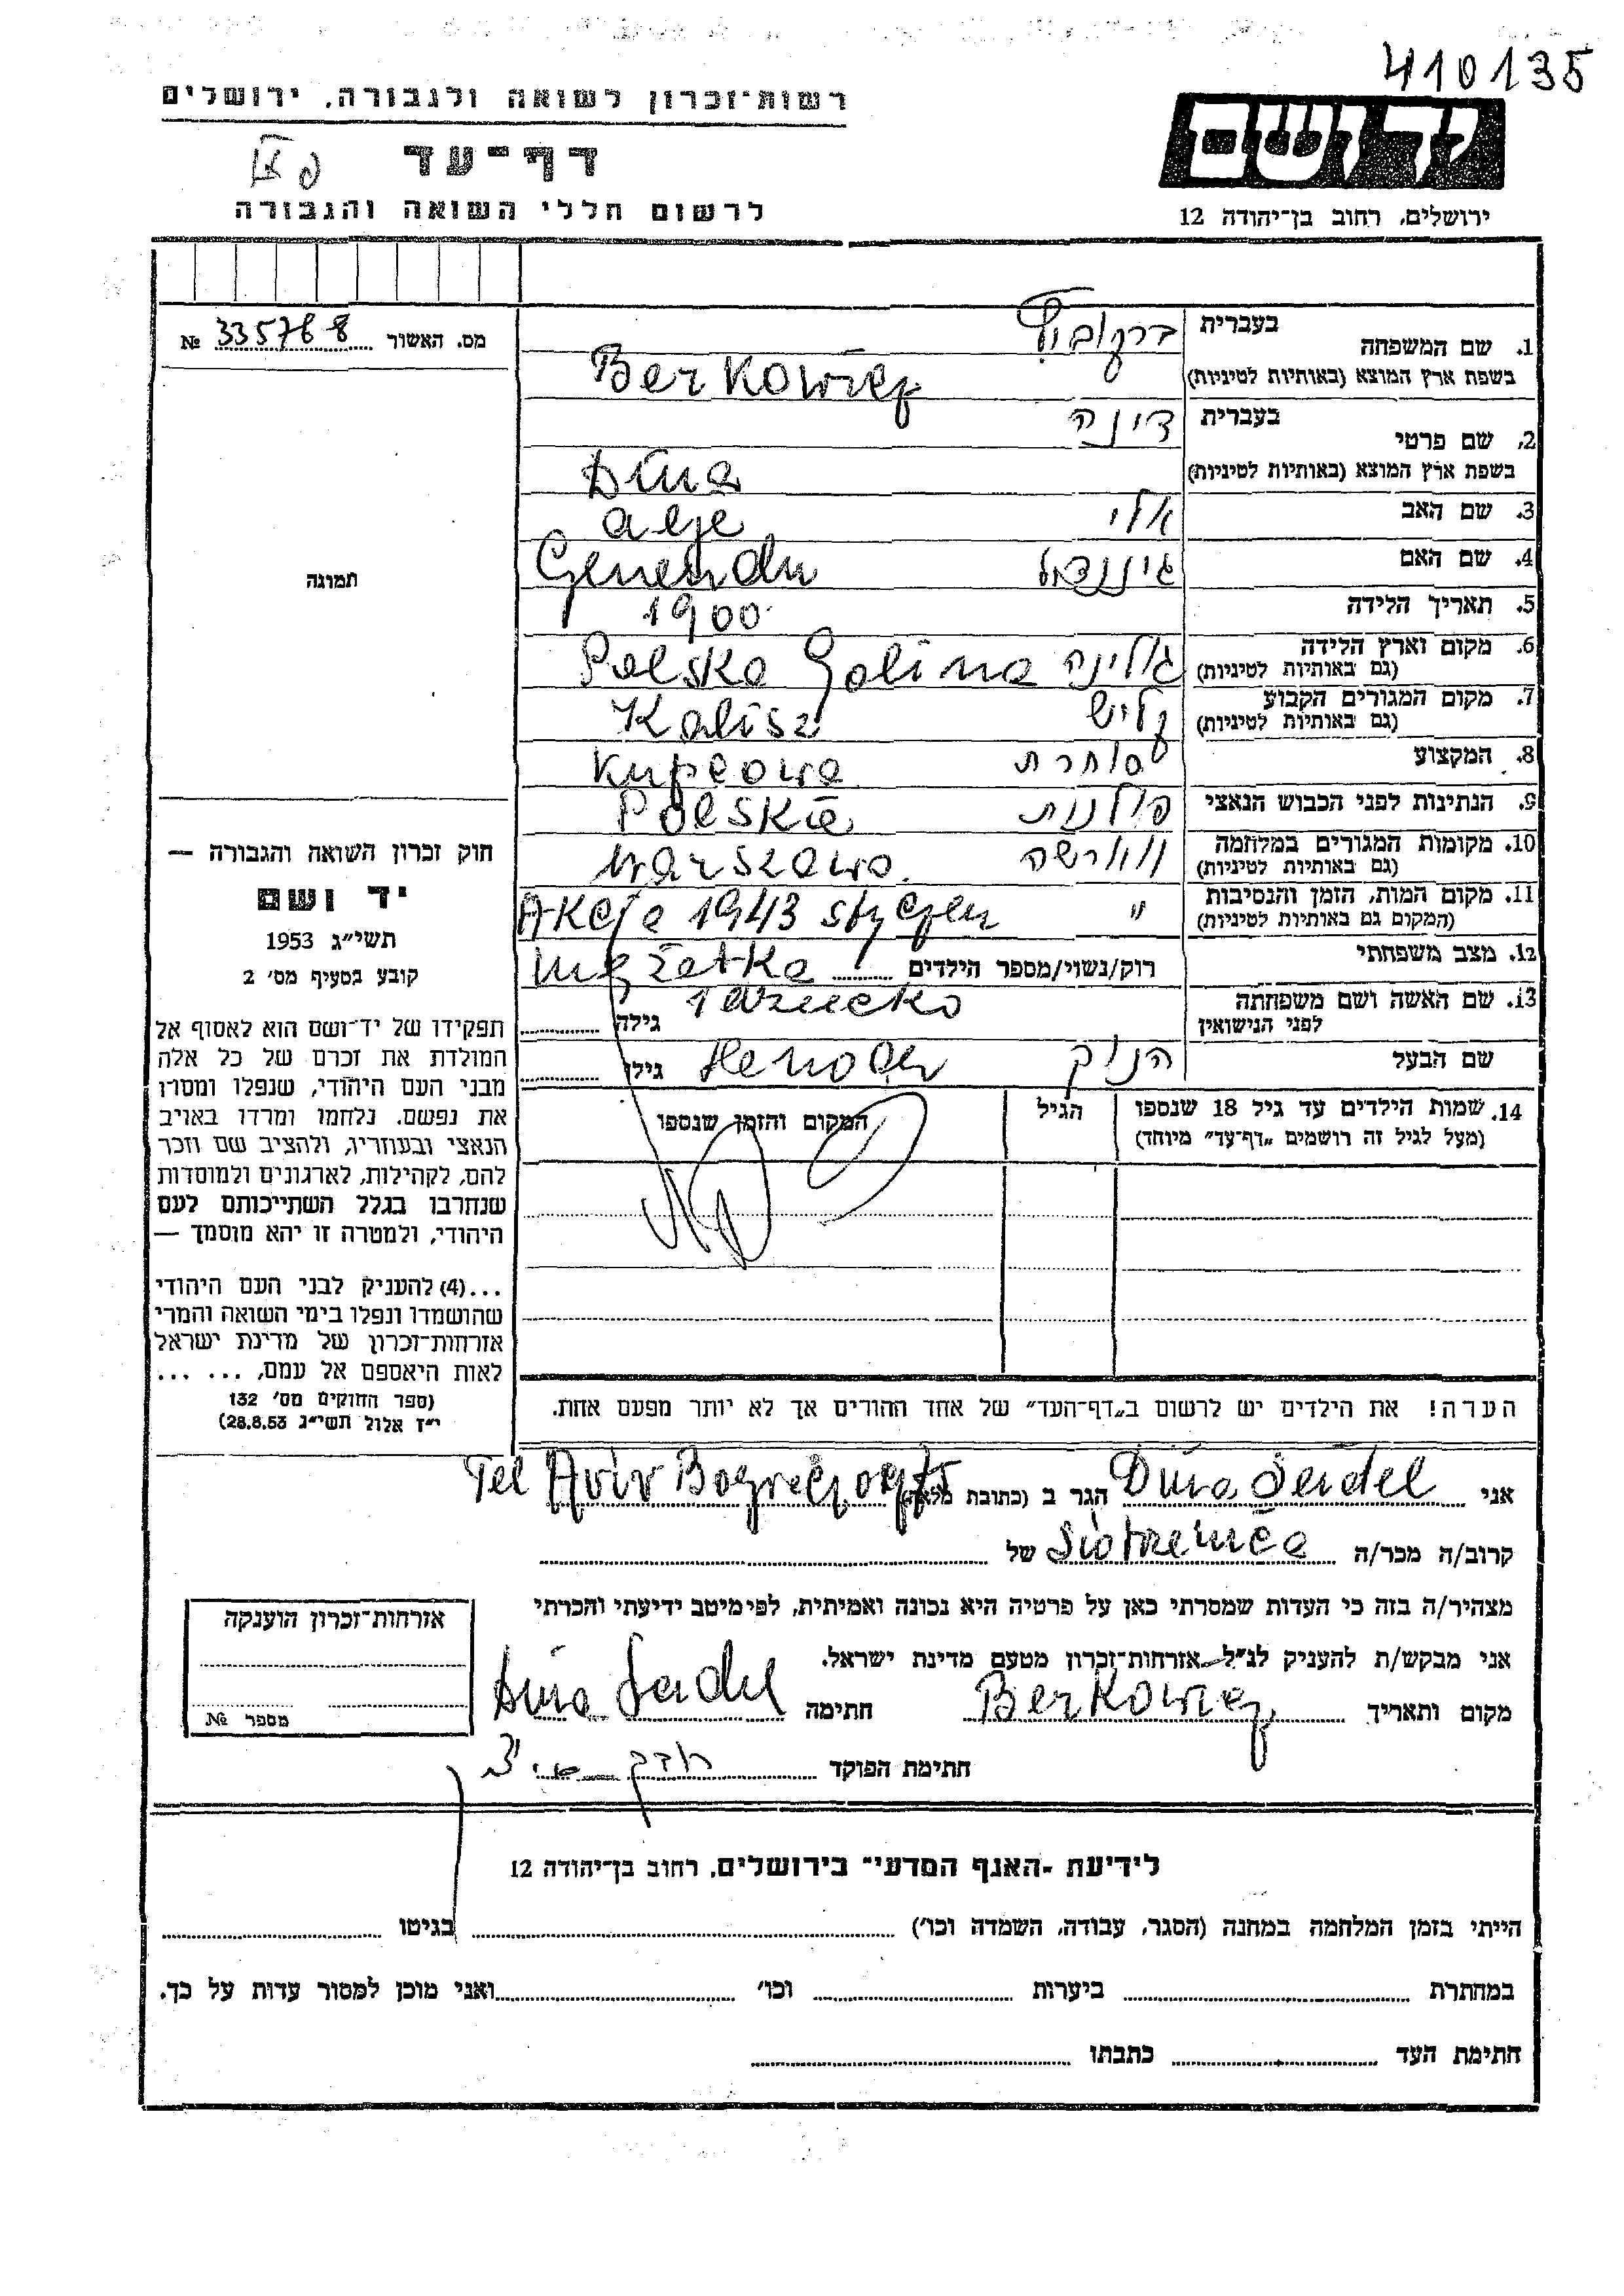 410135
רשות־זכרון לשואה ולגבורה, ירושלים
יד ושם
דף־עד
לרשום חללי השואה והגבורה
ירושלים, רחוב בן־יהודה 12
מס. האשור № 335768
1. שם המשפחה
בעברית ברקוביץ
בשפת ארץ המוצא (באותיות לטיניות) Berkowicz
2. שם פרטי
בעברית דינה
בשפת ארץ המוצא (באותיות לטיניות) Dina
3. שם האב אלי
4. שם האם
5. תאריך הלידה 1900
6. מקום וארץ הלידה גולינה Golina Polska
(גם באותיות לטיניות)
7. מקום המגורים הקבוע קליש Kalisz
(גם באותיות לטיניות)
8. המקצוע סוחרת Kupcowa
9. הנתינות לפני הכבוש הנאצי פולנית Polskie
10. מקומות המגורים במלחמה ווארשה Warszawa
(גם באותיות לטיניות)
11. מקום המות, הזמן והנסיבות " Akcja 1943 styczen
(המקום גם באותיות לטיניות)
12. מצב משפחתי
רוק/נשוי/מספר הילדים Mężatka
1 dziecko
13. שם האשה ושם משפחתה
לפני הנישואין
גילה
שם הבעל הנוך Henoch גילו
14. שמות הילדים עד גיל 18 שנספו
(מעל לגיל זה רושמים „דף־עד" מיוחד)
הגיל
המקום והזמן שנספו
תמונה
חוק זכרון השואה והגבורה —
יד ושם
תשי״ג 1953
קובע בסעיף מס׳ 2
תפקידו של יד־ושם הוא לאסוף אל
המולדת את זכרם של כל אלה
מבני העם היהודי, שנפלו ומסרו
את נפשם, נלחמו ומרדו באויב
הנאצי ובעוזריו, ולהציב שם וזכר
להם, לקהילות, לארגונים ולמוסדות
שנחרבו בגלל השתייכותם לעם
היהודי, ולמטרה זו יהא מוסמך —
...(4) להעניק לבני העם היהודי
שהושמדו ונפלו בימי השואה והמרי
אזרחות־זכרון של מדינת ישראל
לאות היאספם אל עמם, ... ...
(ספר החוקים מס׳ 132
י״ז אלול תשי״ג 28.8.53)
הערה! את הילדים יש לרשום ב„דף־העד" של אחד ההורים אך לא יותר מפעם אחת.
אני Dina Seidel הגר ב (כתובת מלאה) Tel Aviv
קרוב/ה מכר/ה Siotrenica של
מצהיר/ה בזה כי העדות שמסרתי כאן על פרטיה היא נכונה ואמיתית, לפי מיטב ידיעתי והכרתי
אני מבקש/ת להעניק לנ״ל אזרחות־זכרון מטעם מדינת ישראל.
מקום ותאריך Berkowicz חתימה Dina Seidel
חתימת הפוקד
אזרחות־זכרון הוענקה
מספר №
לידיעת „האגף המדעי" בירושלים, רחוב בן־יהודה 12
הייתי בזמן המלחמה במחנה (הסגר, עבודה, השמדה וכו׳) בגיטו
במחתרת ביערות וכו׳ ואני מוכן למסור עדות על כך.
חתימת העד כתבתו